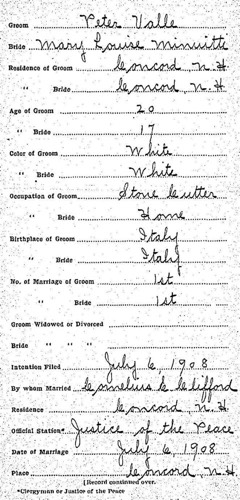 Groom Peter Valle
Bride Mary Louise Minuitte
Residence of Groom Concord, N. H
" Bride Concord, N. H
Age of Groom 20
" Bride 17
Color of Groom White
" Bride White
Occupation of Groom Stone Cutter
" Bride Home
Birthplace of Groom Italy
" Bride Italy
No. of Marriage of Groom 1st
" Bride 1st
Groom Widowed or Divorced
Bride " " "
Intention Filed July 6, 1908
By whom Married Cornelius E. Clifford
Residence Concord, N. H.
Official Station* Justice of the Peace
Date of Marriage July 6, 1908
Place Concord, N. H.
[Record continued over.
*Clergyman or Justice of the Peace